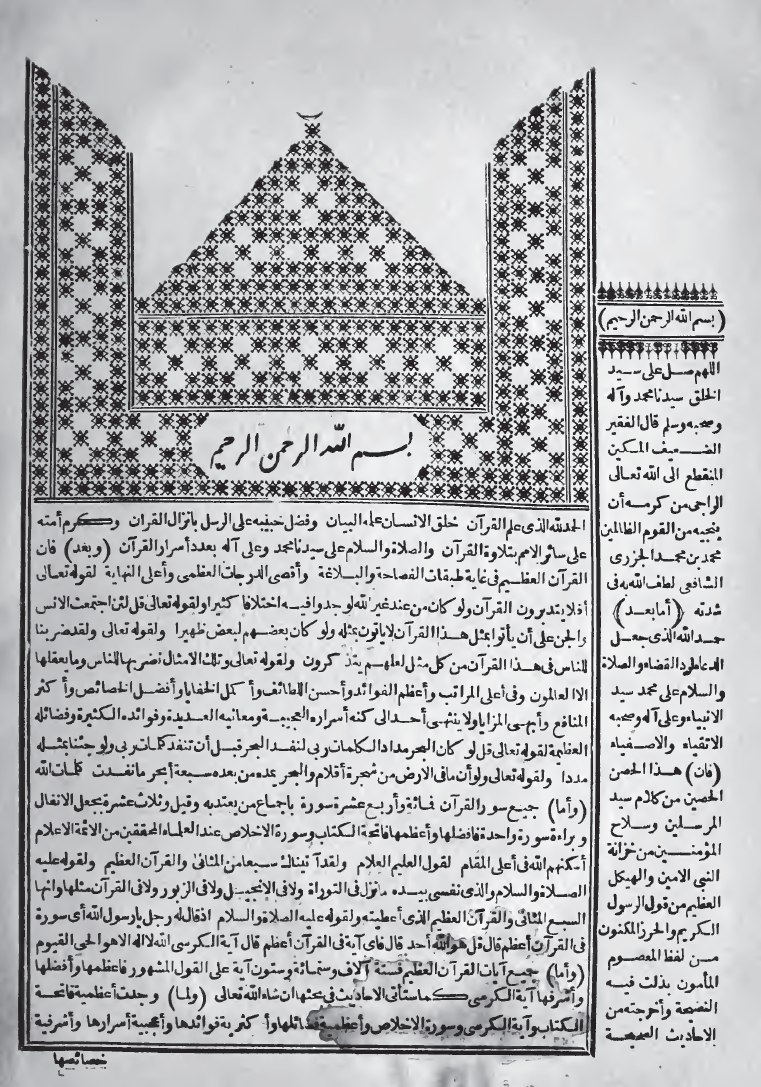 بسم الله الرحمن الرحيم
الحمد لله الذى علم القرآن خلق الانسان علمه البيان وفضل حبيبه على الرسل بانزال القران وكرم أمته
على سائر الامم بتلاوة القرآن والصلاة والسلام على سيدنا محمد وعلى آله بعدد أسرار القرآن (وبعد) فان
القرآن العظيم فى غاية طبقات الفصاحة والبلاغة وأقصى الدرجات العظمى وأعلى النهاية لقوله تعالى
أفلا يتدبرون القرآن ولو كان من عند غير الله لوجدوا فيه اختلافا كثيرا ولقوله تعالى قل لئن اجتمعت الانس
والجن على أن يأتوا بمثل هذا القرآن لا يأتون بمثله ولو كان بعضهم لبعض ظهيرا ولقوله تعالى ولقد ضربنا
للناس فى هذا القرآن من كل مثل لعلهم يتذكرون ولقوله تعالى وتلك الامثال نضربها للناس وما يعقلها
الا العالمون وفى أعلى المراتب وأعظم الفوائد وأحسن اللطائف وأكمل الخفايا وأفضل الخصائص وأكثر
المنافع وأبهى المزايا ولا ينتهى أحد الى كنه أسراره العجيبة ومعانيه العديدة وفوائده الكثيرة وفضائله
العظيمة لقوله تعالى قل لو كان البحر مدادا لكلمات ربى لنفد البحر قبل أن تنفد كلمات ربى ولو جئنا بمثله
مددا ولقوله تعالى ولو أن ما فى الارض من شجرة أقلام والبحر يمده من بعده سبعة أبحر ما نفدت كلمات الله
(وأما) جميع سور القرآن فمائة وأربع عشرة سورة باجماع من يعتد به وقيل وثلاث عشرة بجعل الانفال
وبراءة سورة واحدة فافضلها وأعظمها فاتحة الكتاب وسورة الاخلاص عند العلماء المحققين من الائمة الاعلام
أسكنهم الله فى أعلى المقام لقول العليم العلام ولقد آتيناك سبعا من المثانى والقرآن العظيم ولقوله عليه
الصلاة والسلام والذى نفسى بيده ما نزل فى التوراة ولا فى الانجيل ولا فى الزبور ولا فى القرآن مثلها وانها
السبع المثانى والقرآن العظيم الذى أعطيته ولقوله عليه الصلاة والسلام اذ قال له رجل يا رسول الله أى سورة
فى القرآن أعظم قال قل هو الله أحد قال فاى آية فى القرآن أعظم قال آية الكرسى الله لا اله الا هو الحى القيوم
(وأما) جميع آيات القرآن العظيم فستة آلاف وستمائة وستون آية على القول المشهور فاعظمها وأفضلها
وأشرفها آية الكرسى كما ستأتى الاحاديث فى بحثها ان شاء الله تعالى (ولما) وجدت أعظمية فاتحة
الكتاب وآية الكرسى وسورة الاخلاص وأعظمية فضائلها وأكثرية فوائدها وأعجبية أسرارها وأشرفية
خصائصها
(بسم الله الرحمن الرحيم)
اللهم صل على سيد
الخلق سيدنا محمد وآله
وصحبه وسلم قال الفقير
الضعيف المسكين
المنقطع الى الله تعالى
الراجى من كرمه أن
ينجيه من القوم الظالمين
محمد بن محمد الجزرى
الشافعى لطف الله به فى
شدته (أما بعد)
حمد الله الذى جعل
الدعاء لرد القضاء والصلاة
والسلام على محمد سيد
الانبياء وعلى آله وصحبه
الاتقياء والاصفياء
(فان) هذا الحصن
الحصين من كلام سيد
المرسلين وسلاح
المؤمنين من خزانة
النبى الامين والهيكل
العظيم من قول الرسول
الكريم والحرز المكنون
من لفظ المعصوم
المأمون بذلت فيه
النصيحة وأخرجته من
الاحاديث الصحيحة